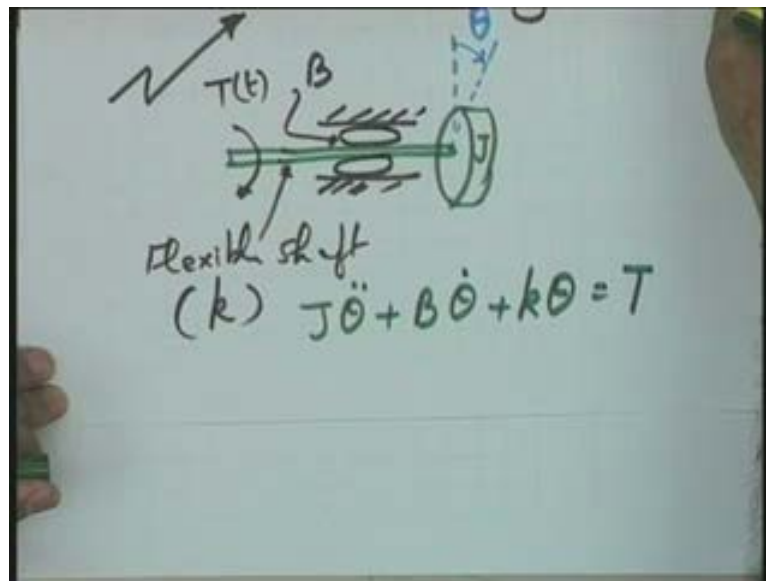 θ
T(t) B
J
Flexible shaft
(k) Jθ̈ + Bθ̇ + kθ = T